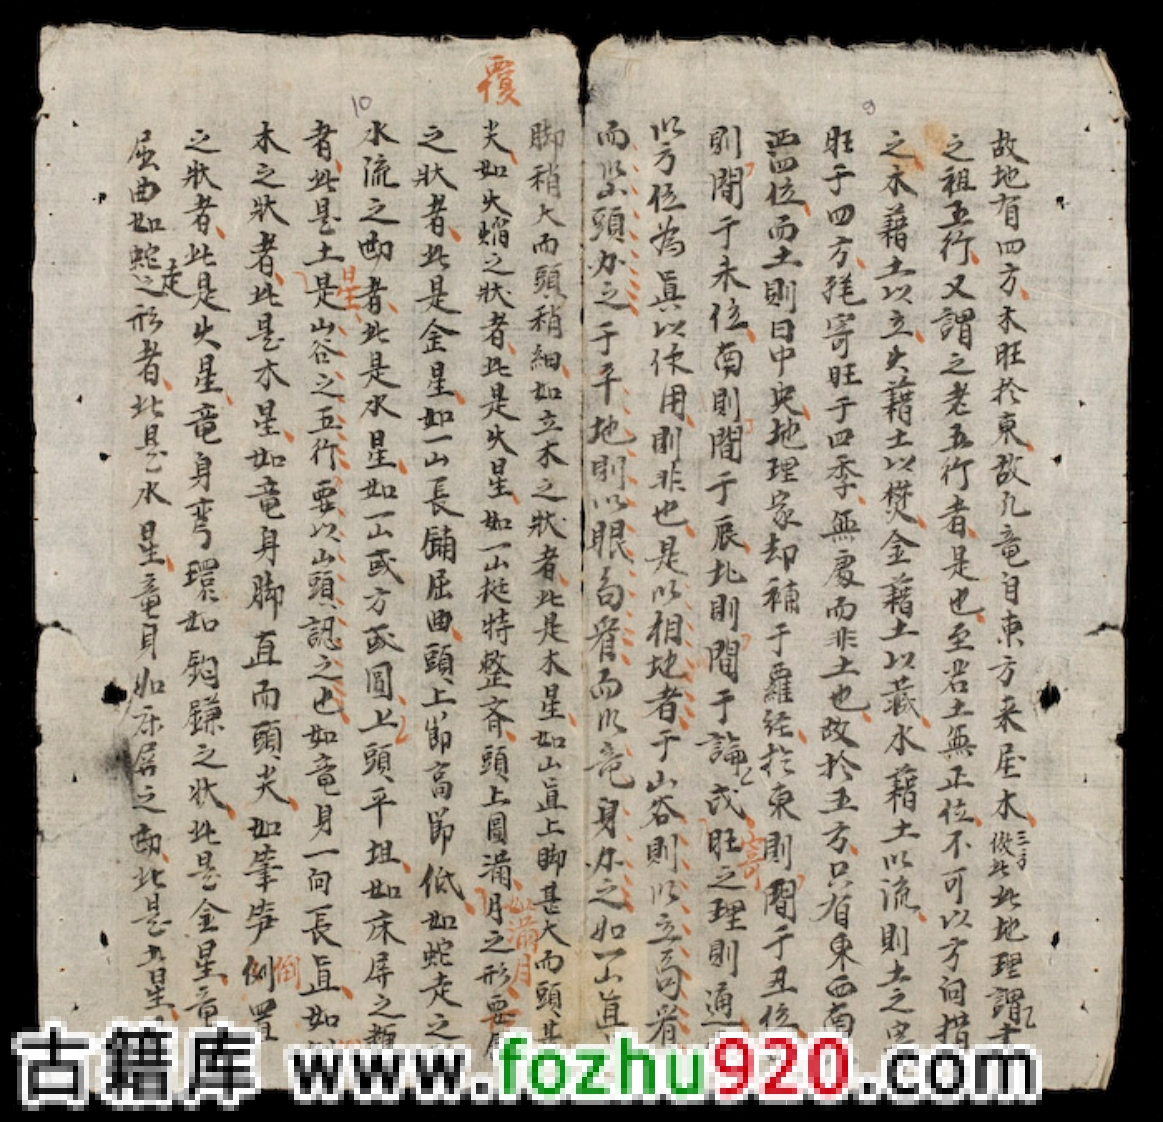 9
故地有四方木旺於東故凡竜自東方来屋木三方倣此此地理謂
之祖五行又謂之老五行者是也至若土無正位不可以方向指
之木藉土以立火藉土以焚金藉土以藏水藉土以流則土之
旺于四方寄旺于四季無處而非土也故於五方只有東西南
四位而土則曰中央地理家却補于羅经於東則閪于丑位
則閪于未位南則閪于辰北則閪于論戍寄旺之理則通
以方位為真以使用則非也是以相地者于山谷則以立向省
而以山頭办之于平地則以眼向省而以竜身办之如一山直
覆
脚稍大而頭稍細如立木之狀者此是木星如山直上脚甚大而頭
尖如火熖之狀者此是火星如一山挺特整斉頭上圓满月之形
如滿月
之狀者此是金星如一山長鋪屈曲頭上節高節低如蛇走之
10
水流之者此是水星如一山或方或圓上頭平坦如床屏之類
者此是土星是山谷之五行要以山頭認之也如竜身一向長直如
木之狀者此是木星如竜身脚直而頭尖如筆笋倒置
倒
之狀者此是火星竜身弯環如鈎鎌之状此是金星竜
屈曲如蛇走之形者此是水星竜身如床屏之此是土星
古籍库 www.fozhu920.com